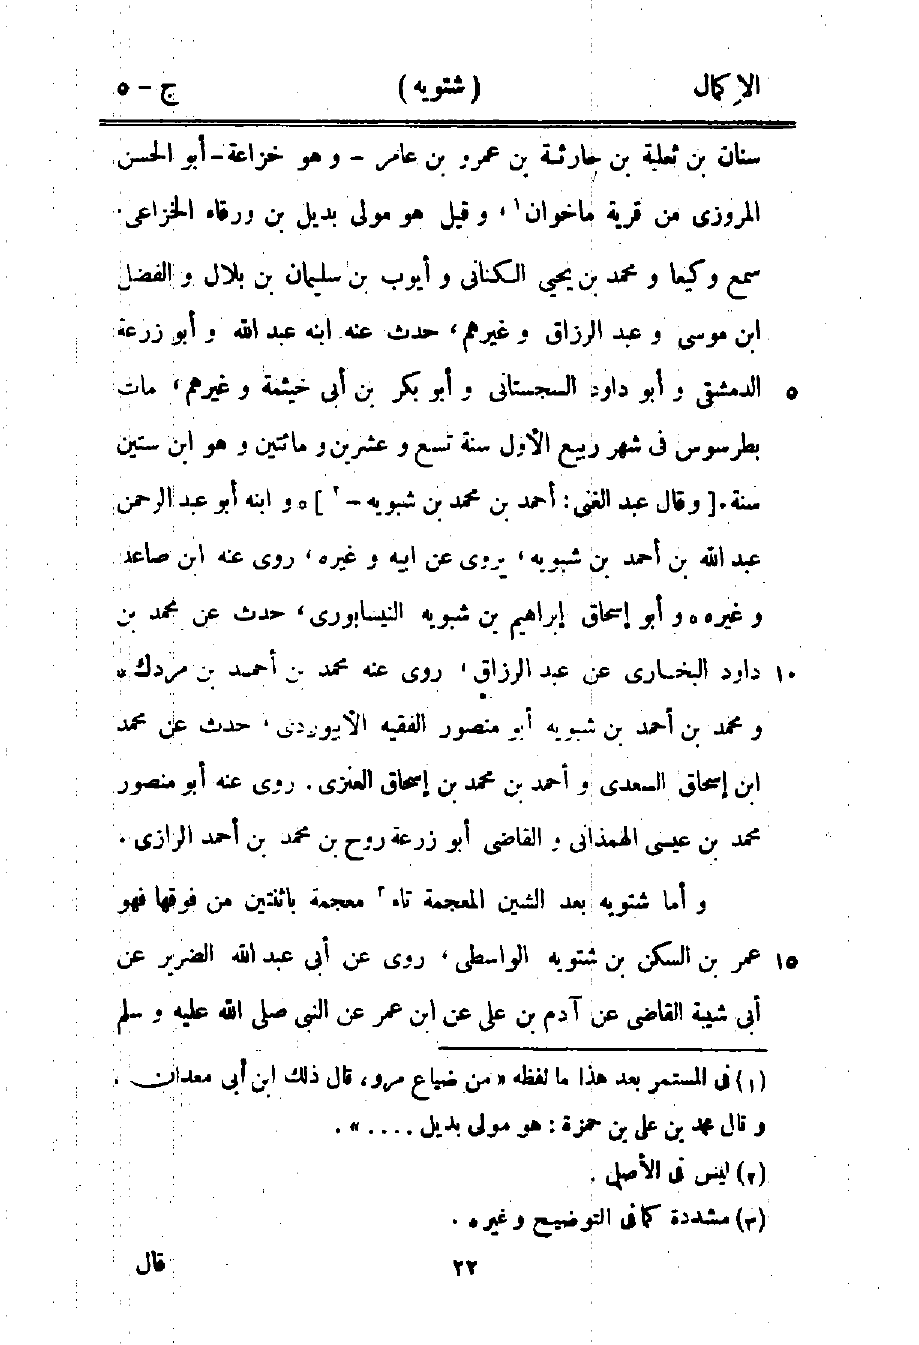 الإكمال (شتويه) ج - ٥
سنان بن ثعلبة بن حارثة بن عمرو بن عامر - و هو خزاعة - أبو الحسن
المروزى من قرية ماخوان١، و قيل هو مولى بديل بن ورقاء الخزاعى.
سمع وكيعا و محمد بن يحيى الكنانى و أيوب بن سليمان بن بلال و الفضل
ابن موسى و عبد الرزاق و غيرهم، حدث عنه ابنه عبد الله و أبو زرعة
٥ الدمشقى و أبو داود السجستانى و أبو بكر بن أبى خيثمة و غيرهم، مات
بطرسوس فى شهر ربيع الأول سنة تسع و عشرين و مائتين و هو ابن ستين
سنة. [ و قال عبد الغنى: أحمد بن محمد بن شبويه -٢ ] ٥ و ابنه أبو عبد الرحمن
عبد الله بن أحمد بن شبويه، يروى عن ابيه و غيره، روى عنه ابن صاعد
و غيره ٥ و أبو إسحاق إبراهيم بن شبويه النيسابورى، حدث عن محمد بن
١٠ داود البخارى عن عبد الرزاق، روى عنه محمد بن أحمد بن مردك ٥
و محمد بن أحمد بن شبويه أبو منصور الفقيه الأبيوردى، حدث عن محمد
ابن إسحاق السعدى و أحمد بن محمد بن إسحاق العنزى. روى عنه أبو منصور
محمد بن عيسى الهمذانى و القاضى أبو زرعة روح بن محمد بن أحمد الرازى.
و أما شتويه بعد الشين المعجمة تاء٣ معجمة باثنتين من فوقها فهو
١٥ عمر بن السكن بن شتويه الواسطى، روى عن أبى عبد الله الضرير عن
أبى شيبة القاضى عن آدم بن على عن ابن عمر عن النبى صلى الله عليه و سلم
(١) فى المستمر بعد هذا ما لفظه « من ضياع مرو، قال ذلك ابن أبى معدان.
و قال محمد بن على بن حمزة: هو مولى بديل .... ».
(٢) ليس فى الأصل.
(٣) مشددة كما فى التوضيح و غيره.
٢٢ قال